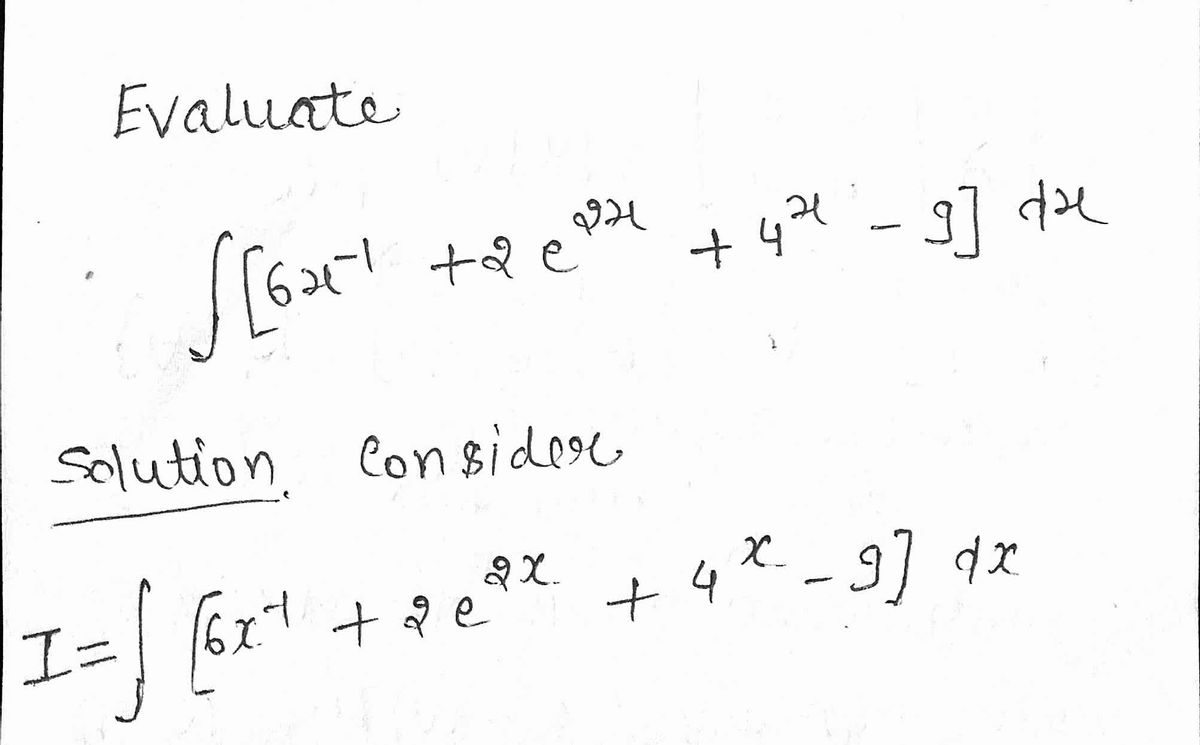 Evaluate
∫[6x⁻¹ + 2e²ˣ + 4ˣ - 9] dx
Solution. Consider
I = ∫[6x⁻¹ + 2e²ˣ + 4ˣ - 9] dx